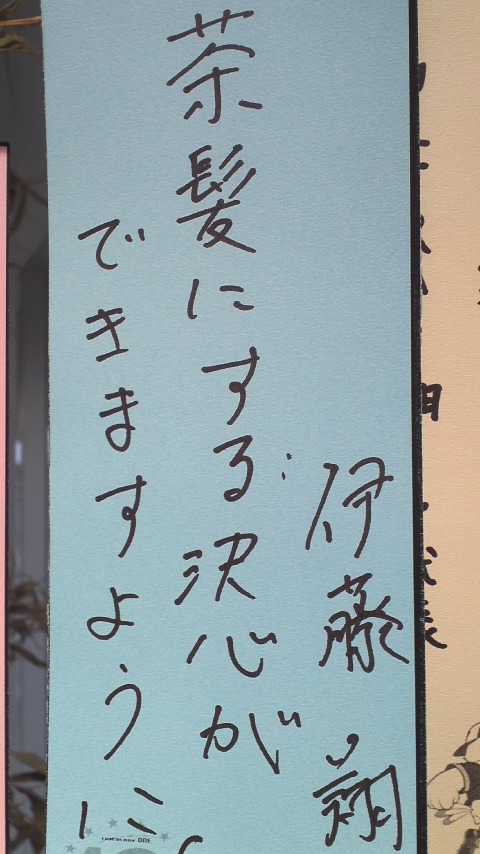 伊藤 翔
茶髪にする決心が
できますように